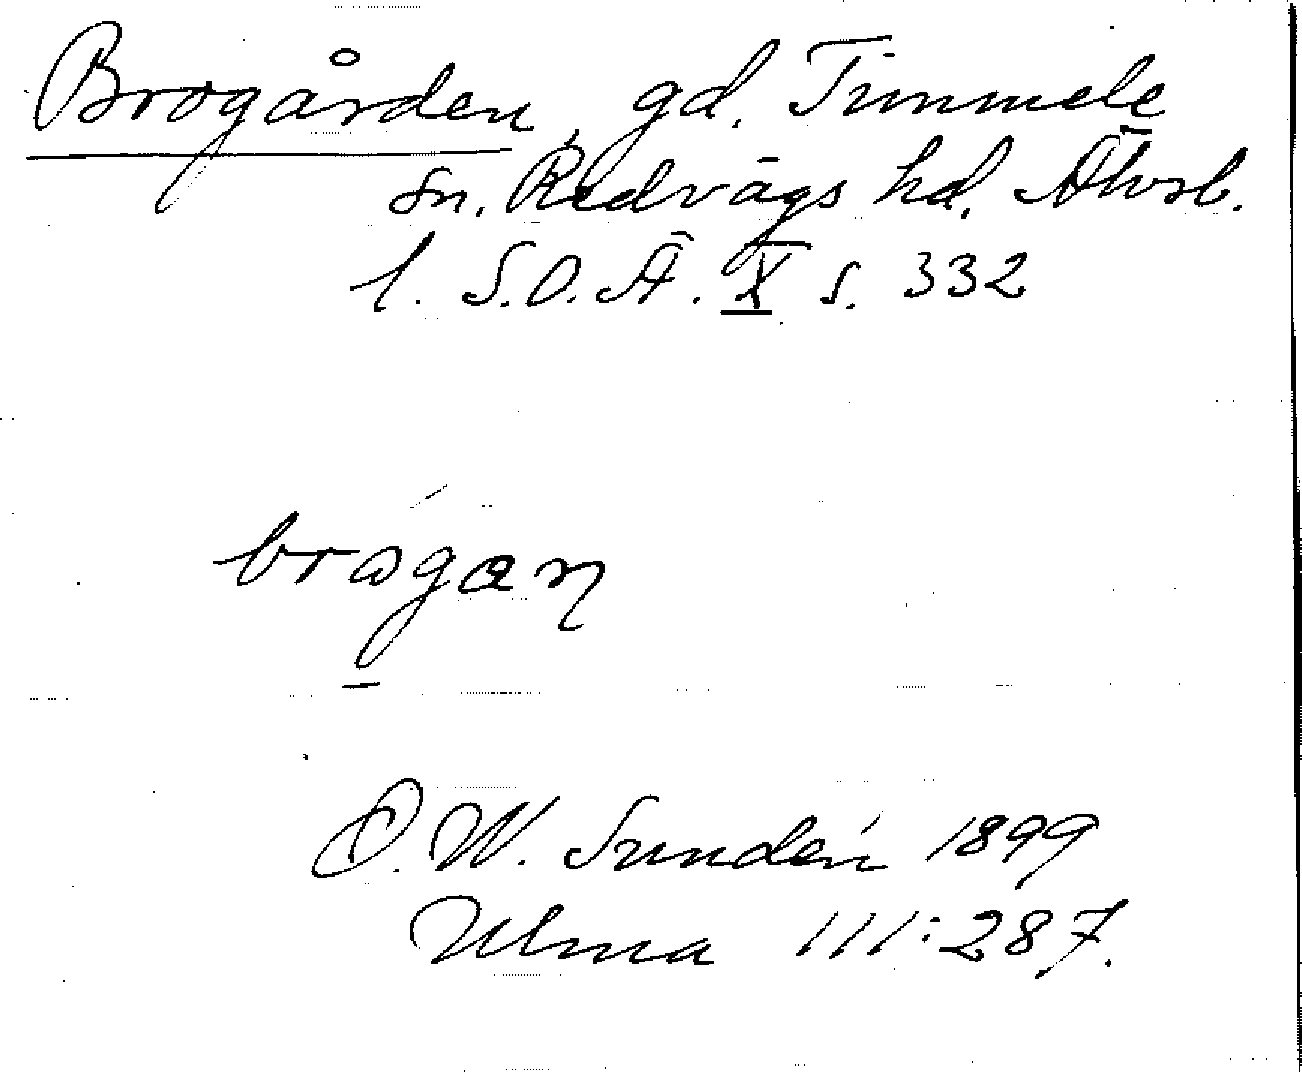 Brogården, gd. Timmele
sn. Redvägs hd. Älvsb.
l. S.O.Ä. X s. 332
brogan
D. W. Sundén 1899
Ulma 111:287.